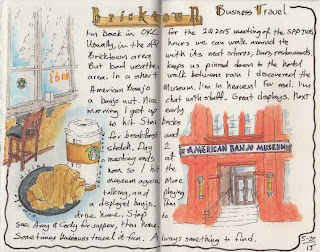 Bricktown Business Travel
I'm back in OKC for the 2Q2015 meeting of the SPP
Usually, in the off hours we can walk around the
Bricktown area with its neat stores, bars, restaurants.
But bad weather keeps us pinned down to the hotel
area. In a short walk between rain I discovered the
American Banjo Museum. I'm in heaven! For real. I'm
a banjo nut. Nice chat with staff. Great displays. Next
morning I get up early
to hit Starbucks
for breakfast and
sketch. Day 2
meeting ends at
noon so I hit the
museum again. More
talking, and playing
a displayed banjo. Then
drive home. Stop to
see Amy & Cody for supper, then home.
Sometimes business travel is fun. Always something to find.
AMERICAN BANJO MUSEUM
5-20
15